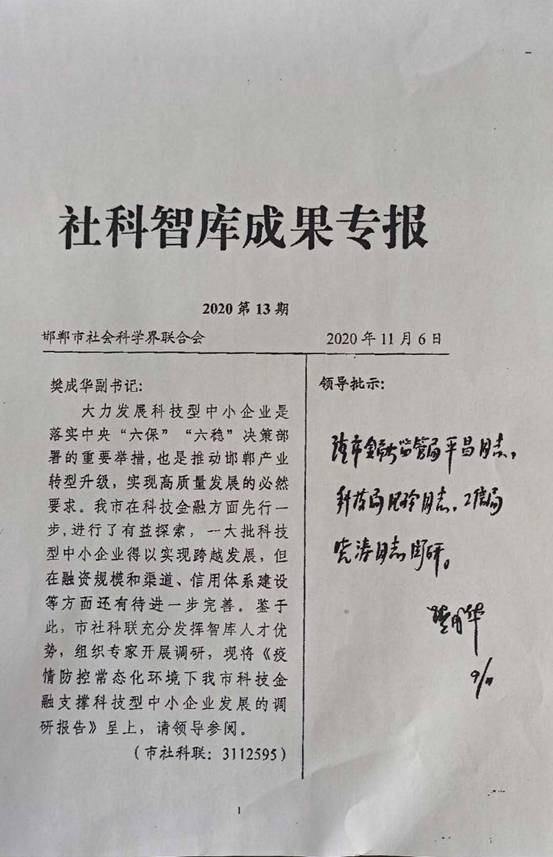 社科智库成果专报
2020 第 13 期
邯郸市社会科学界联合会
2020 年 11 月 6 日
樊成华副书记:
大力发展科技型中小企业是
落实中央“六保”“六稳”决策部
署的重要举措,也是推动邯郸产业
转型升级,实现高质量发展的必然
要求。我市在科技金融方面先行一
步,进行了有益探索,一大批科技
型中小企业得以实现跨越发展,但
在融资规模和渠道、信用体系建设
等方面还有待进一步完善。鉴于
此,市社科联充分发挥智库人才优
势,组织专家开展调研,现将《疫
情防控常态化环境下我市科技金
融支撑科技型中小企业发展的调
研报告》呈上,请领导参阅。
(市社科联:3112595)
领导批示:
监管局平昌同志,
科技局 同志、工信局
涛同志阅研。
9/11
1